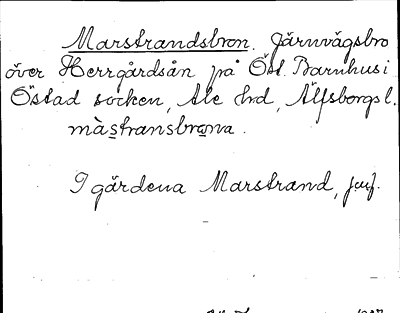 Marstrandsbron. Järnvägsbro
över Herrgårdsån på Öst. Barnhus i
Östad socken, Ale hrd, Älfsborgs l.
màstransbrona.
I gärdena Marstrand, jmf.